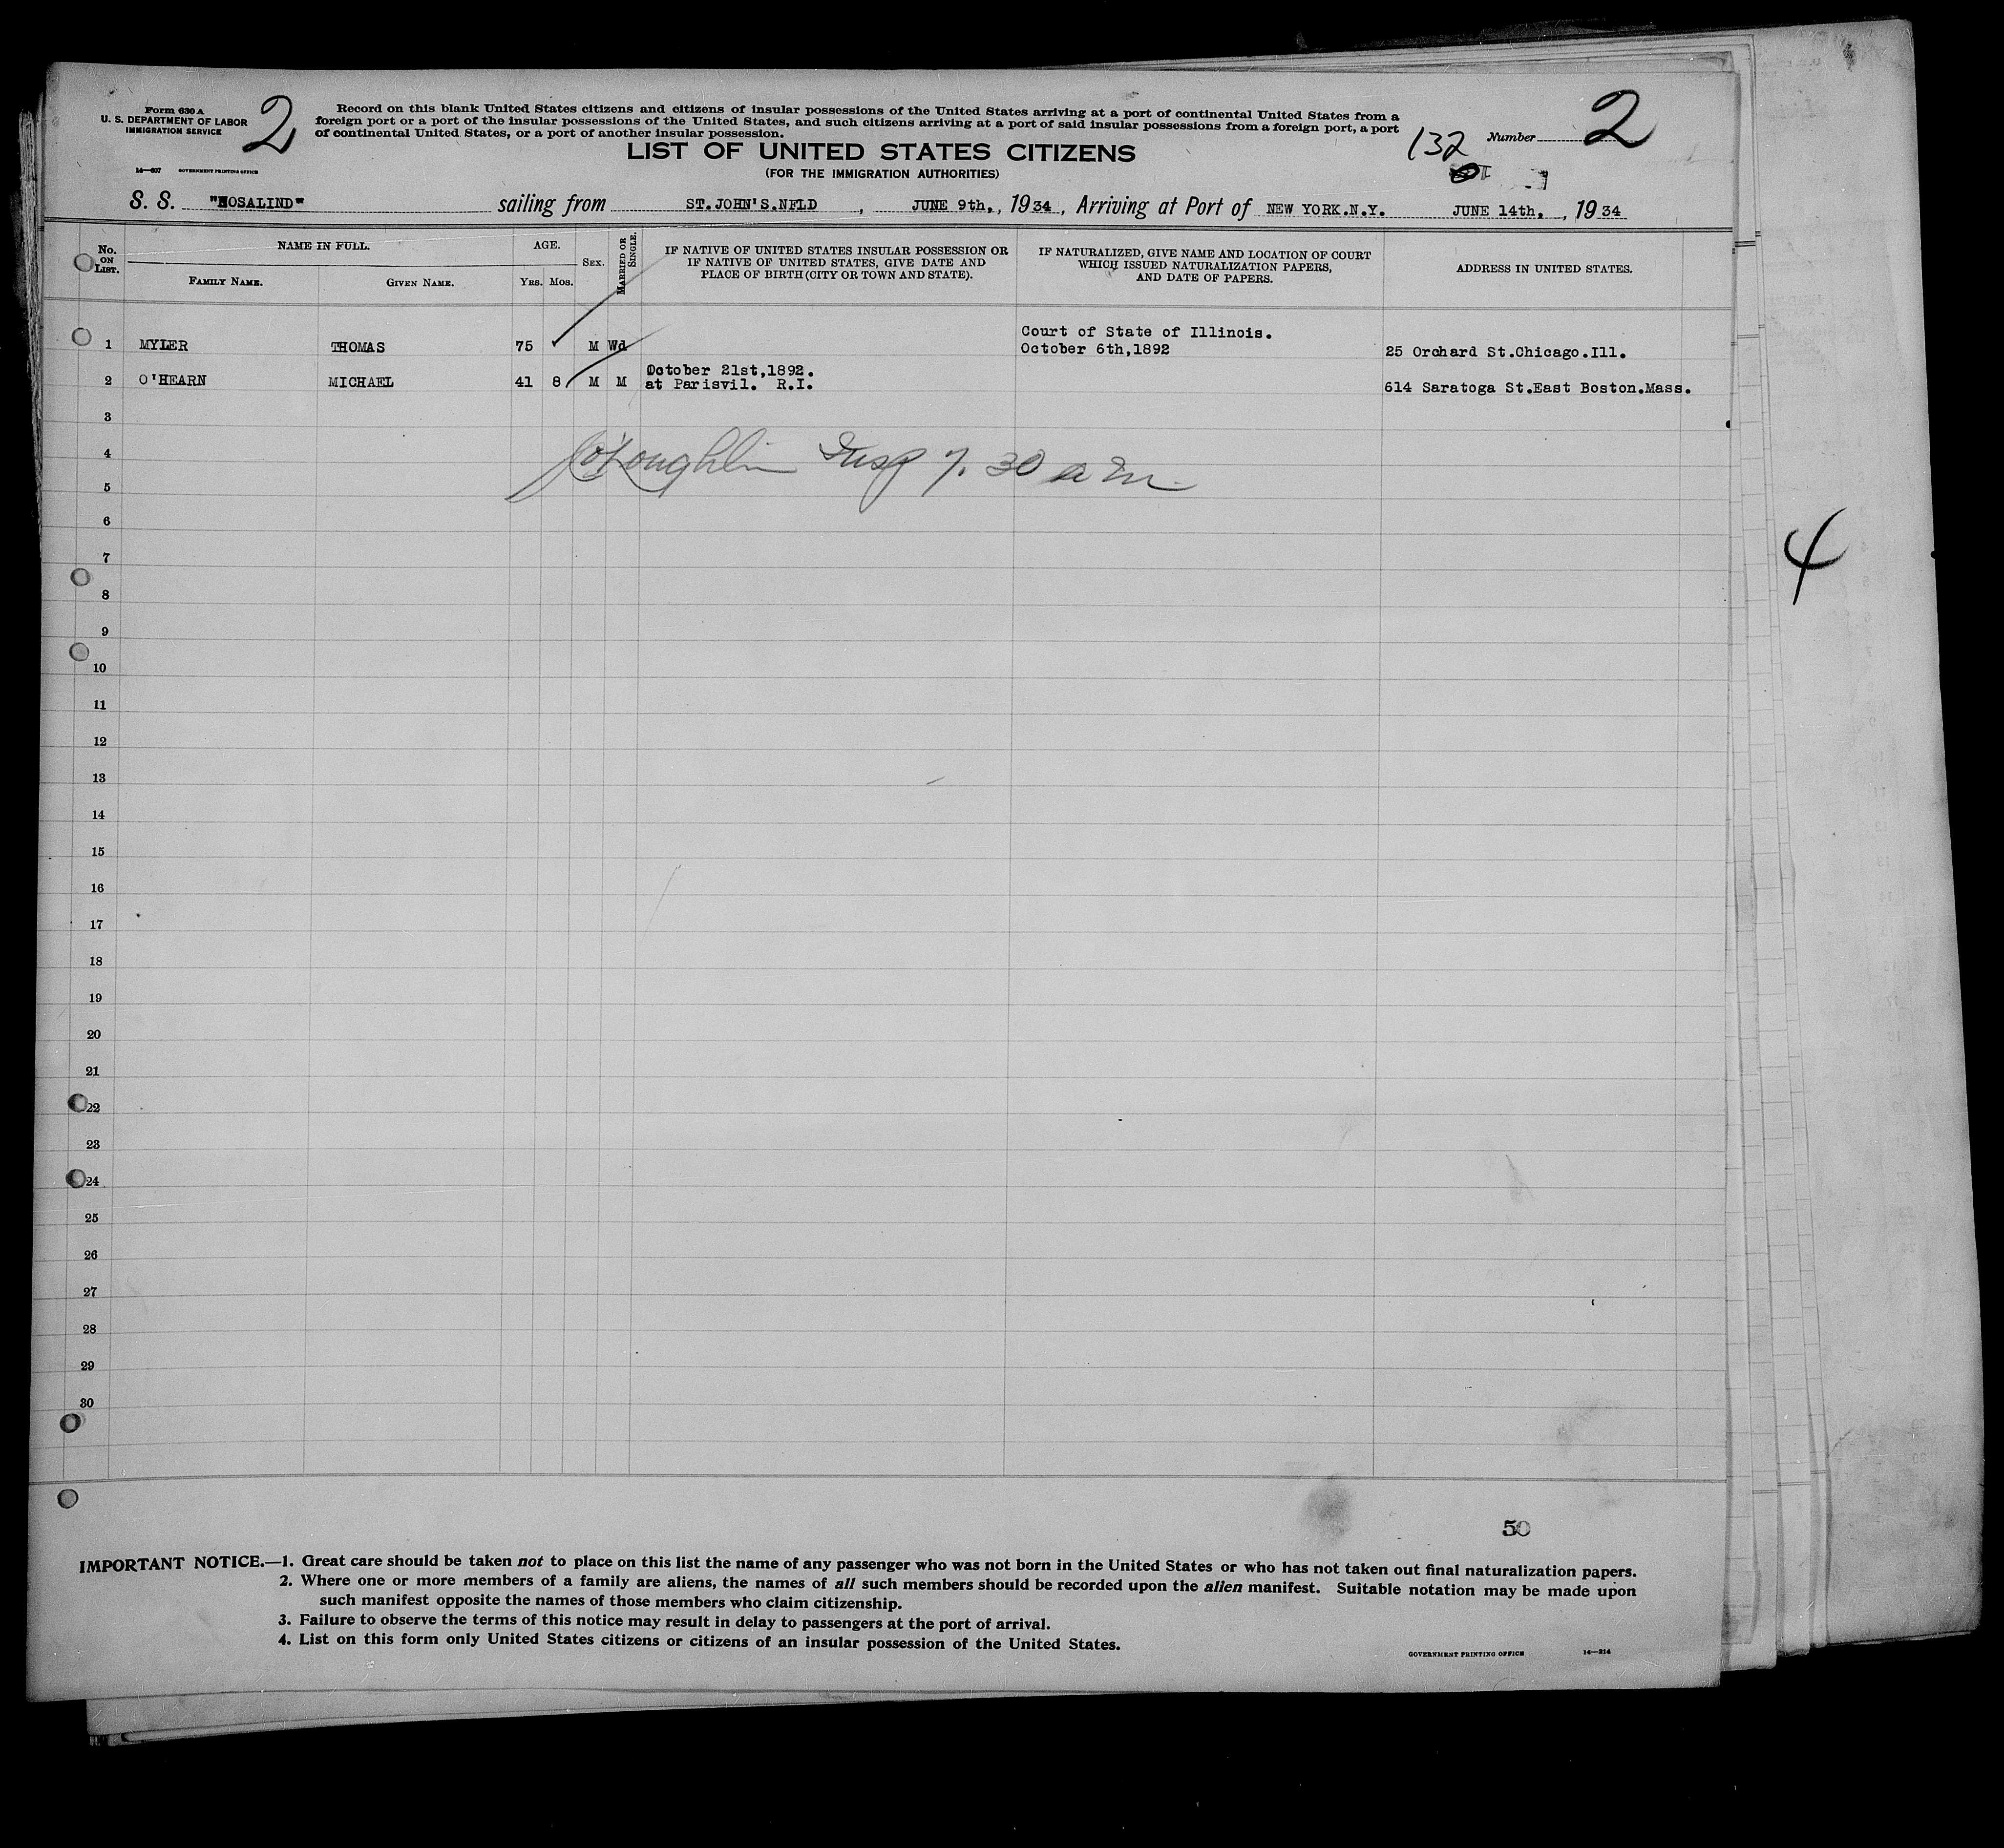 Form 630 A
U. S. DEPARTMENT OF LABOR
IMMIGRATION SERVICE
2
14—607 GOVERNMENT PRINTING OFFICE
Record on this blank United States citizens and citizens of insular possessions of the United States arriving at a port of continental United States from a
foreign port or a port of the insular possessions of the United States, and such citizens arriving at a port of said insular possessions from a foreign port, a port
of continental United States, or a port of another insular possession.
132
Number 2
LIST OF UNITED STATES CITIZENS
(FOR THE IMMIGRATION AUTHORITIES)
S. S. "ROSALIND" sailing from ST.JOHN'S.NFLD , JUNE 9th., 1934, Arriving at Port of NEW YORK.N.Y. JUNE 14th. , 1934
No. ON LIST. NAME IN FULL. AGE. SEX. MARRIED OR SINGLE. IF NATIVE OF UNITED STATES INSULAR POSSESSION OR IF NATIVE OF UNITED STATES, GIVE DATE AND PLACE OF BIRTH (CITY OR TOWN AND STATE). IF NATURALIZED, GIVE NAME AND LOCATION OF COURT WHICH ISSUED NATURALIZATION PAPERS, AND DATE OF PAPERS. ADDRESS IN UNITED STATES.
FAMILY NAME. GIVEN NAME. YRS. MOS.
Court of State of Illinois.
1 MYLER THOMAS 75 M Wd October 6th,1892 25 Orchard St.Chicago.Ill.
October 21st,1892.
2 O'HEARN MICHAEL 41 8 M M at Parisvil. R.I. 614 Saratoga St.East Boston.Mass.
3
4
Insp 7.30 a m
5
6
4
7
8
9
10
11
12
13
14
15
16
17
18
19
20
21
22
23
24
25
26
27
28
29
30
50
IMPORTANT NOTICE.—1. Great care should be taken not to place on this list the name of any passenger who was not born in the United States or who has not taken out final naturalization papers.
2. Where one or more members of a family are aliens, the names of all such members should be recorded upon the alien manifest. Suitable notation may be made upon
such manifest opposite the names of those members who claim citizenship.
3. Failure to observe the terms of this notice may result in delay to passengers at the port of arrival.
4. List on this form only United States citizens or citizens of an insular possession of the United States.
GOVERNMENT PRINTING OFFICE 14—214